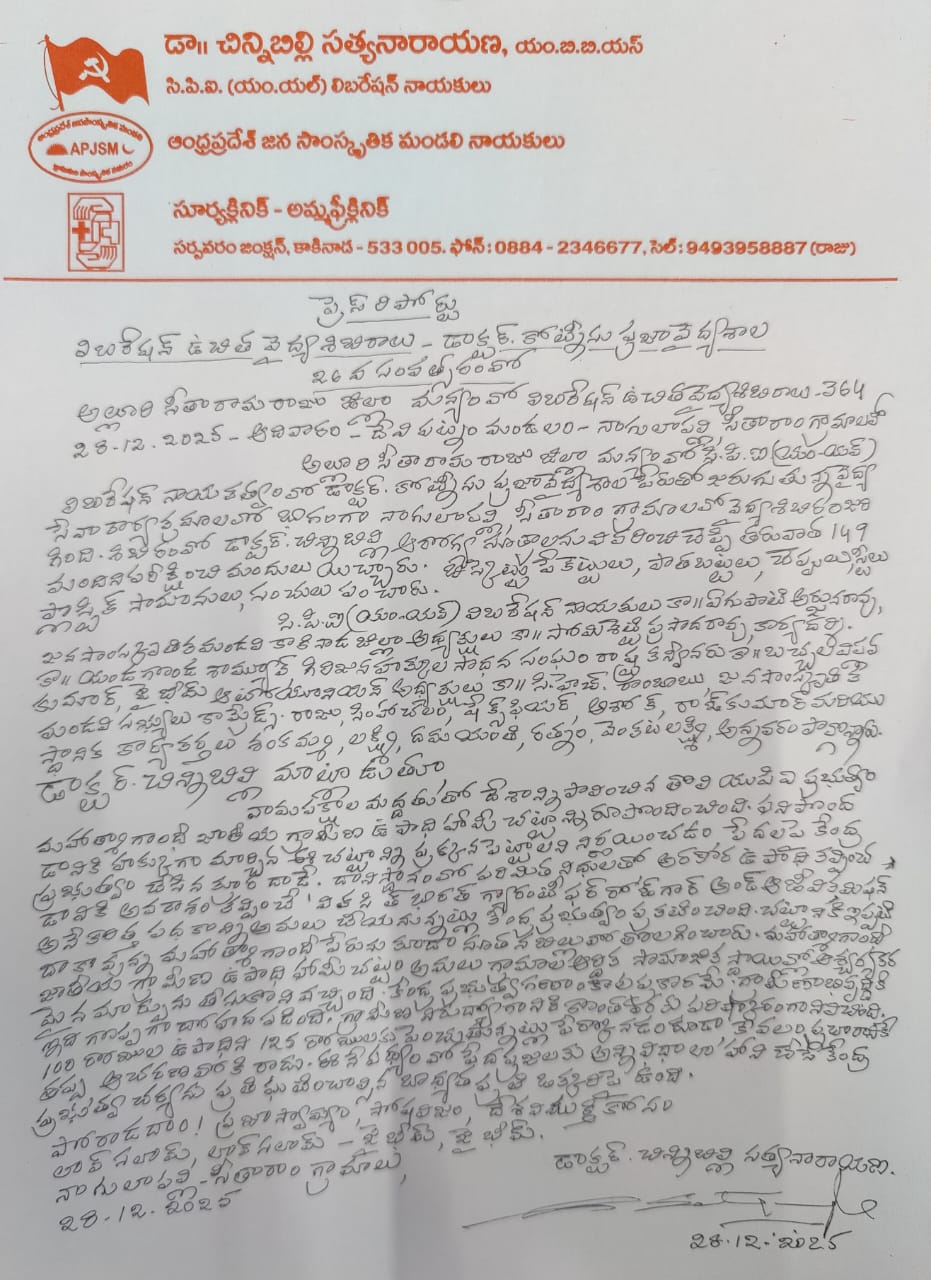 డా॥ చిన్నిబిల్లి సత్యనారాయణ, యం.బి.బి.యస్
సి.పి.ఐ. (యం.యల్) లిబరేషన్ నాయకులు
ఆంధ్రప్రదేశ్ జన సాంస్కృతిక మండలి
APJSM
ఆంధ్రప్రదేశ్ జన సాంస్కృతిక మండలి నాయకులు
సూర్యక్లినిక్ - అమ్మఫ్రీక్లినిక్
సర్పవరం జంక్షన్, కాకినాడ - 533 005. ఫోన్ : 0884 - 2346677, సెల్ : 9493958887 (రాజు)
ప్రెస్ రిపోర్టు
లిబరేషన్ ఉచిత వైద్య శిబిరాలు - డాక్టర్. కోట్నీసు ప్రజావైద్యశాల
26 వ సంవత్సరంలో
అల్లూరి సీతారామ రాజు జిల్లా మన్యంలో లిబరేషన్ ఉచిత వైద్యశిబిరాలు - 364
28.12.2025 - ఆదివారం - దేవిపట్నం మండలం - నాగులాపల్లి, సీతారాం గ్రామాలలో
అల్లూరి సీతారామ రాజు జిల్లా మన్యంలో సి.పి.ఐ (యం-యల్)
లిబరేషన్ నాయకత్వంలో డాక్టర్. కోట్నీసు ప్రజావైద్యశాల పేరుతో జరుగుతున్న వైద్య
సేవా కార్యక్రమాలలో భాగంగా నాగులాపల్లి, సీతారాం గ్రామాలలో వైద్యశిబిరం జరి
గింది. శిబిరంలో డాక్టర్. చిన్నిబిల్లి ఆరోగ్య సూత్రాలను వివరించి చెప్పి తరువాత 149
మందిని పరీక్షించి మందులు యిచ్చారు. బిస్కెట్లు పేకెట్టులు, పాతబట్టలు, చెప్పులు, స్టీలు
ప్లాస్టిక్ సామానులు, సంచులు పంచారు.
సి.పి.ఐ (యం-యల్) లిబరేషన్ నాయకులు కా॥ ఏగుపాటి అర్జునరావు,
జనసాంస్కృతిక మండలి కాకినాడ జిల్లా అధ్యక్షులు కా॥ సారమిశెట్టి ప్రసాదరావు, కార్యదర్శి.
కా॥ యండగొండ శామ్యూల్ గిరిజన హక్కుల సాధన సంఘం రాష్ట్ర కన్వీనరు కా॥ బచ్చల విపవ్
కుమార్, జై భీమ్ ఆటో యూనియన్ అధ్యక్షులు కా॥ సి.హెచ్. రాంబాబు, జనసాంస్కృతిక
మండలి సభ్యులు కామ్రేడ్స్. రాజు, సింహాచలం, షేక్స్పియర్, అశోక్, రాజ్‌కుమార్ మరియు
స్థానిక కార్యకర్తలు శంకమ్మ, లక్ష్మి, దమయంతి, రత్నం, వెంకటలక్ష్మి, అన్నవరం పాల్గొన్నారు.
డాక్టర్. చిన్నిబిల్లి మాట్లాడుతూ
వామపక్షాల మద్దతుతో దేశాన్ని పాలించిన తొలి యుపిఏ ప్రభుత్వం
మహాత్మాగాంధీ జాతీయ గ్రామీణ ఉపాధి హామీ చట్టాన్ని రూపొందించింది. పనిపొంద
డానికి హక్కుగా మార్చిన ఈ చట్టాన్ని ప్రక్కన పెట్టాలని నిర్ణయించడం పేదలపై కేంద్ర
ప్రభుత్వం చేసిన క్రూర దాడే. దాని స్థానంలో పరిమిత నిధులతో అరకొర ఉపాధి కల్పించ
డానికి అవకాశం కల్పించే 'వికసిత్ భారత్ గ్యారంటీ ఫర్ రోజ్ గార్ అండ్ ఆజీవికా మిషన్
అనే కొత్త పథకాన్ని అమలు చేయనున్నట్లు కేంద్ర ప్రభుత్వం ప్రకటించింది. చట్టానికి ఇప్పటి
దాకా వున్న మహాత్మాగాంధీ పేరును కూడా నూతన బిల్లులో తొలగించారు. మహాత్మాగాంధీ
జాతీయ గ్రామీణ ఉపాధి హామీ చట్టం అమలు గ్రామాల ఆర్థిక సామాజిక స్థాయిల్లో ఆశ్చర్యకర
మైన మార్పును తీసుకొని వచ్చింది. కేంద్ర ప్రభుత్వ గణాంకాల ప్రకారమే గ్రామీణాభివృద్ధికి
ఇది గొప్పగా దోహద పడింది. గ్రామీణ నిరుద్యోగానికి కొంతవరకు పరిష్కారంగా నిలిచింది.
100 రోజుల ఉపాధిని 125 రోజులకు పెంచుతున్నట్లు పేర్కొనడం కూడా కేవలం ప్రచారానికే
తప్ప ఆచరణలోకి రాదు. ఈ నేపథ్యంలో పేద ప్రజలకు అన్ని విధాలా హాని చేసే కేంద్ర
ప్రభుత్వ చర్యను ప్రతిఘటించాల్సిన బాధ్యత ప్రతి ఒక్కరిపై ఉంది.
పోరాడదాం! ప్రజాస్వామ్యం, సోషలిజం, దేశ విముక్తి కోసం
లాల్ సలామ్, లాల్ సలామ్ - జై భీమ్, జై భీమ్.
నాగులాపల్లి - సీతారాం గ్రామాలు,
28.12.2025
డాక్టర్. చిన్నిబిల్లి సత్యనారాయణ.
28.12.2025